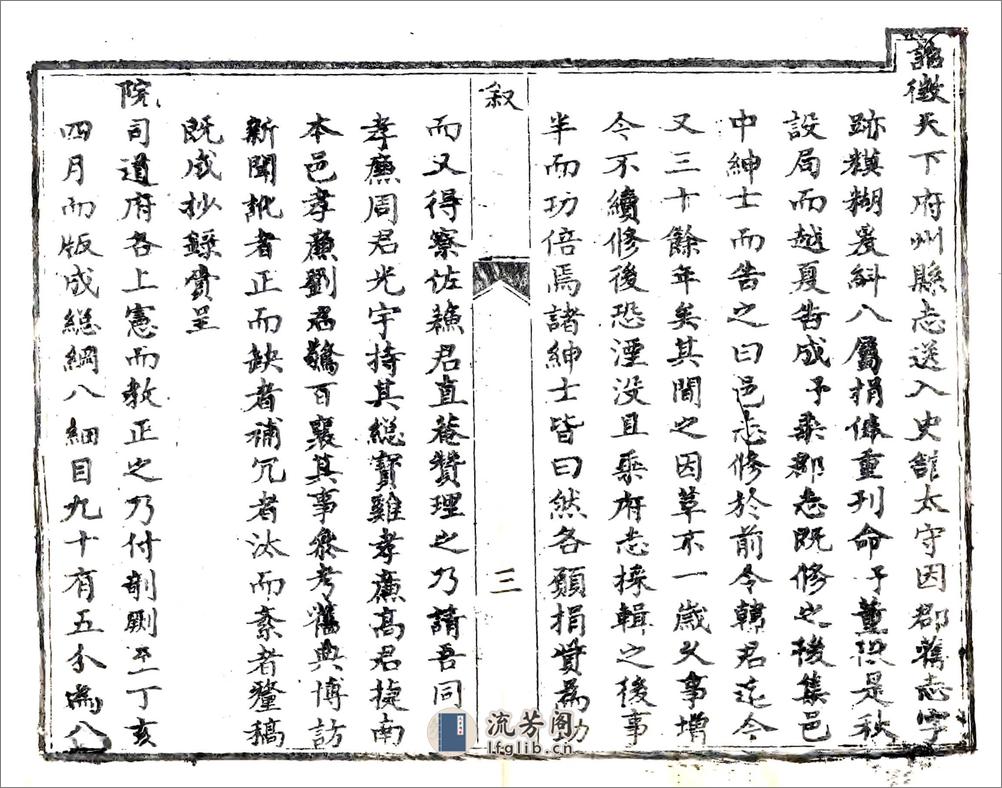 詔徵天下府州縣志送入史館太守因郡舊志字
跡糢糊爰斜八屬捐俸重刊命予董役是秋
設局而越夏告成予乘郡志既修之後集邑
中紳士而告之曰邑志修於前令韓君迄今
又三十餘年矣其間之因革不一歲久事增
今不續修後恐湮没且乘府志採輯之後事
半而功倍焉諸紳士皆曰然各願捐貲為助
叙
三
而又得寮佐君直菴贊理之乃請吾同
孝廉周君光宇持其總寳雞孝廉高君捷南
本邑孝廉劉君驚百襄其事叅考舊典博訪
新聞訛者正而缺者補冗者汰而紊者釐稿
既成抄錄賫呈
院司道府各上憲而教正之乃付剞劂至丁亥
四月而版成總綱八細目九十有五分為八
流芳阁
lfglib.cn